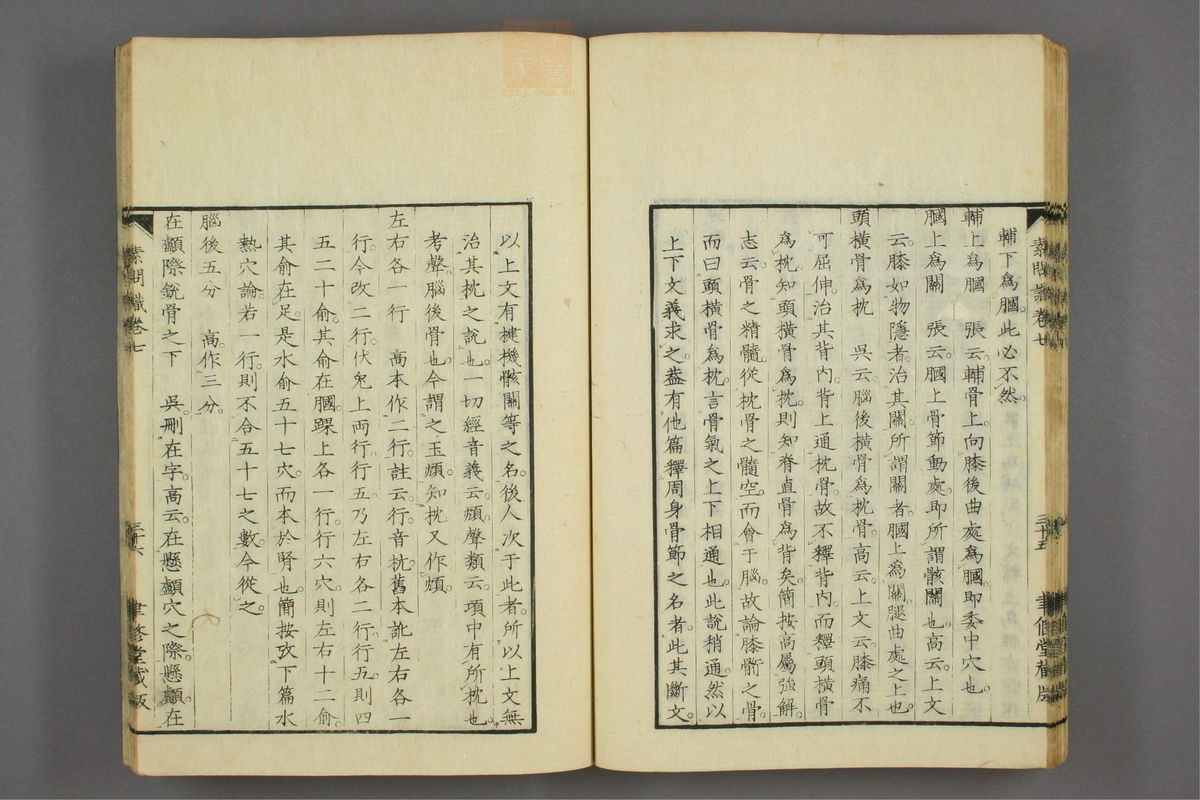 輔下爲膕此必不然
輔上爲膕　張云輔骨上向膝後曲處爲膕即委中穴也
膕上爲關　張云膕上骨節動處即所謂骸關也高云上文
云膝如物隱者治其關所謂關者膕上爲關腿曲處之上也
頭橫骨爲枕　吳云腦後橫骨爲枕骨高云上文云膝痛不
可屈伸治其背內背上通枕骨故不釋背內而釋頭橫骨
爲枕知頭橫骨爲枕則知脊直骨爲背矣簡按高屬強解
志云骨之精髓從枕骨之髓空而會于腦故論膝䯒之骨
而曰頭橫骨爲枕言骨氣之上下相通也此說稍通然以
上下文義求之蓋有他篇釋周身骨節之名者此其斷文
素問識卷七
三十五
聿修堂藏版
以上文有揵機骸關等之名後人次于此者所以上文無
治其枕之說也一切經音義云䪴聲類云項中有所枕也
考聲腦後骨也今謂之玉䪴知枕又作䪴
左右各一行　高本作二行註云行音杭舊本訛左右各一
行今改二行伏兔上兩行行五乃左右各二行行五則四
五二十俞其俞在膕踝上各一行行六穴則左右十二俞
其俞在足是水俞五十七穴而本於腎也簡按攷下篇水
熱穴論若一行則不合五十七之數今從之
腦後五分　高作三分
在顱際銳骨之下　吳刪在字高云在懸顱穴之際懸顱在
素問識卷七
三十六
聿修堂藏版